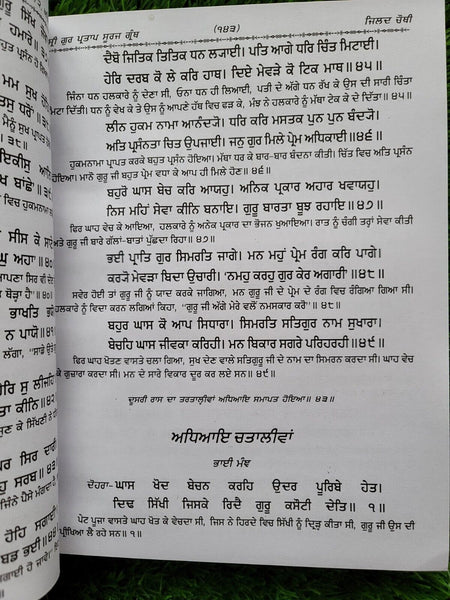 ਸ੍ਰੀ ਗੁਰ ਪ੍ਰਤਾਪ ਸੂਰਜ ਗ੍ਰੰਥ (੧੪੩) ਜਿਲਦ ਚੌਥੀ
ਦੈਬੋ ਜਿਤਿਕ ਤਿਤਿਕ ਧਨ ਲਯਾਈ। ਪਤਿ ਆਗੇ ਧਰਿ ਚਿੰਤ ਮਿਟਾਈ।
ਹੇਰਿ ਦਰਬ ਕੋ ਲੇ ਕਰਿ ਹਾਥ। ਦਿਏ ਮੇਵੜੇ ਕੋ ਟਿਕ ਮਾਥ॥੪੫॥
ਜਿੰਨਾ ਧਨ ਹਲਕਾਰੇ ਨੂੰ ਦੇਣਾ ਸੀ, ਓਨਾ ਧਨ ਹੀ ਲਿਆਈ, ਪਤੀ ਦੇ ਅੱਗੇ ਧਨ ਰੱਖ ਕੇ ਉਸ ਦੀ ਸਾਰੀ ਚਿੰਤਾ
ਮਟਾ ਦਿੱਤੀ। ਧਨ ਨੂੰ ਵੇਖ ਕੇ ਤੇ ਉਸ ਨੂੰ ਆਪਣੇ ਹੱਥ ਵਿਚ ਫੜ ਕੇ, ਮੰਝ ਨੇ ਹਲਕਾਰੇ ਨੂੰ ਮੱਥਾ ਟੇਕ ਕੇ ਦੇ ਦਿੱਤਾ॥੪੫॥
ਲੀਨ ਹੁਕਮ ਨਾਮਾ ਆਨੰਦਯੋ। ਧਰਿ ਕਰਿ ਮਸਤਕ ਪੁਨ ਪੁਨ ਬੰਦਯੋ।
ਅਤਿ ਪ੍ਰਸੰਨਤਾ ਚਿਤ ਉਪਜਾਈ। ਜਨੁ ਗੁਰ ਮਿਲੇ ਪ੍ਰੇਮ ਅਧਿਕਾਈ॥੪੬॥
ਹੁਕਮਨਾਮਾ ਪ੍ਰਾਪਤ ਕਰਕੇ ਬਹੁਤ ਪ੍ਰਸੰਨ ਹੋਇਆ। ਮੱਥਾ ਧਰ ਕੇ ਬਾਰ-ਬਾਰ ਬੰਦਨਾ ਕੀਤੀ। ਚਿੱਤ ਵਿਚ ਅਤਿ ਪ੍ਰਸੰਨ
ਹੋਇਆ। ਮਾਨੋ ਗੁਰੂ ਜੀ ਬਹੁਤ ਪ੍ਰੇਮ ਵਧਾ ਕੇ ਆਪ ਹੀ ਮਿਲੇ ਹੋਣ॥੪੬॥
ਬਹੁਰੋ ਘਾਸ ਬੇਚ ਕਰਿ ਆਯਹੁ। ਅਨਿਕ ਪ੍ਰਕਾਰ ਅਹਾਰ ਖਵਾਯਹੁ।
ਨਿਸ ਮਹਿਂ ਸੇਵਾ ਕੀਨਿ ਬਨਾਇ। ਗੁਰੂ ਬਾਰਤਾ ਬੂਝ ਰਹਾਇ॥੪੭॥
ਫਿਰ ਘਾਹ ਵੇਚ ਕੇ ਆਇਆ, ਹਲਕਾਰੇ ਨੂੰ ਅਨੇਕ ਪ੍ਰਕਾਰ ਦਾ ਭੋਜਨ ਖੁਆਇਆ। ਰਾਤ ਨੂੰ ਚੰਗੀ ਤਰ੍ਹਾਂ ਸੇਵਾ ਕੀਤੀ
ਅਤੇ ਗੁਰੂ ਜੀ ਬਾਰੇ ਗੱਲਾਂ-ਬਾਤਾਂ ਪੁੱਛਦਾ ਰਿਹਾ॥੪੭॥
ਭਈ ਪ੍ਰਾਤਿ ਗੁਰ ਸਿਮਰਤਿ ਜਾਗੇ। ਮਨ ਮਹੁਂ ਪ੍ਰੇਮ ਰੰਗ ਕਰਿ ਪਾਗੇ।
ਕਰਯੋ ਮੇਵੜਾ ਬਿਦਾ ਉਚਾਰੀ। 'ਨਮਹੁ ਕਰਹੁ ਗੁਰ ਕੇਰ ਅਗਾਰੀ'॥੪੮॥
ਸਵੇਰ ਹੋਈ ਤਾਂ ਗੁਰੂ ਜੀ ਨੂੰ ਯਾਦ ਕਰਕੇ ਜਾਗਿਆ, ਮਨ ਗੁਰੂ ਜੀ ਦੇ ਪ੍ਰੇਮ ਦੇ ਰੰਗ ਵਿਚ ਰੰਗਿਆ ਗਿਆ ਸੀ।
ਹਲਕਾਰੇ ਨੂੰ ਵਿਦਾ ਕਰਨ ਲਗਿਆਂ ਕਿਹਾ, "ਗੁਰੂ ਜੀ ਅੱਗੇ ਮੇਰੇ ਵਲੋਂ ਨਮਸਕਾਰ ਕਰੋ"॥੪੮॥
ਬਹੁਰ ਘਾਸ ਕੋ ਆਪ ਸਿਧਾਰਾ। ਸਿਮਰਤਿ ਸਤਿਗੁਰ ਨਾਮ ਸੁਖਾਰਾ।
ਬੇਚਹਿ ਘਾਸ ਜੀਵਕਾ ਕਰਿਹੀ। ਮਨ ਬਿਕਾਰ ਸਗਰੇ ਪਰਿਹਰਹੀ॥੪੯॥
ਫਿਰ ਘਾਹ ਖੋਤਣ ਵਾਸਤੇ ਚਲਾ ਗਿਆ, ਸੁਖ ਦੇਣ ਵਾਲੇ ਸਤਿਗੁਰੂ ਜੀ ਦੇ ਨਾਮ ਦਾ ਸਿਮਰਨ ਕਰਦਾ ਸੀ। ਘਾਹ ਵੇਚ
ਕੇ ਗੁਜ਼ਾਰਾ ਕਰਦਾ ਸੀ। ਮਨ ਦੇ ਸਾਰੇ ਵਿਕਾਰ ਦੂਰ ਕਰ ਲਏ ਸਨ॥੪੯॥
ਦੂਸਰੀ ਰਾਸ ਦਾ ਤਰਤਾਲੀਵਾਂ ਅਧਿਆਇ ਸਮਾਪਤ ਹੋਇਆ॥੪੩॥
ਅਧਿਆਇ ਚਤਾਲੀਵਾਂ
ਭਾਈ ਮੰਝ
ਦੋਹਰਾ- ਘਾਸ ਖੋਦ ਬੇਚਨ ਕਰਹਿ ਉਦਰ ਪੂਰਿਬੇ ਹੇਤ।
ਦਿਢ ਸਿੱਖੀ ਜਿਸਕੇ ਰਿਦੈ ਗੁਰੂ ਕਸੌਟੀ ਦੇਤਿ॥੧॥
ਪੇਟ ਪੂਜਾ ਵਾਸਤੇ ਘਾਹ ਖੋਤ ਕੇ ਵੇਚਦਾ ਸੀ, ਜਿਸ ਨੇ ਹਿਰਦੇ ਵਿਚ ਸਿੱਖੀ ਨੂੰ ਦ੍ਰਿੜ੍ਹ ਕੀਤਾ ਸੀ, ਗੁਰੂ ਜੀ ਉਸ ਦੀ
ਪ੍ਰੀਖਿਆ ਲੈ ਰਹੇ ਸਨ॥੧॥